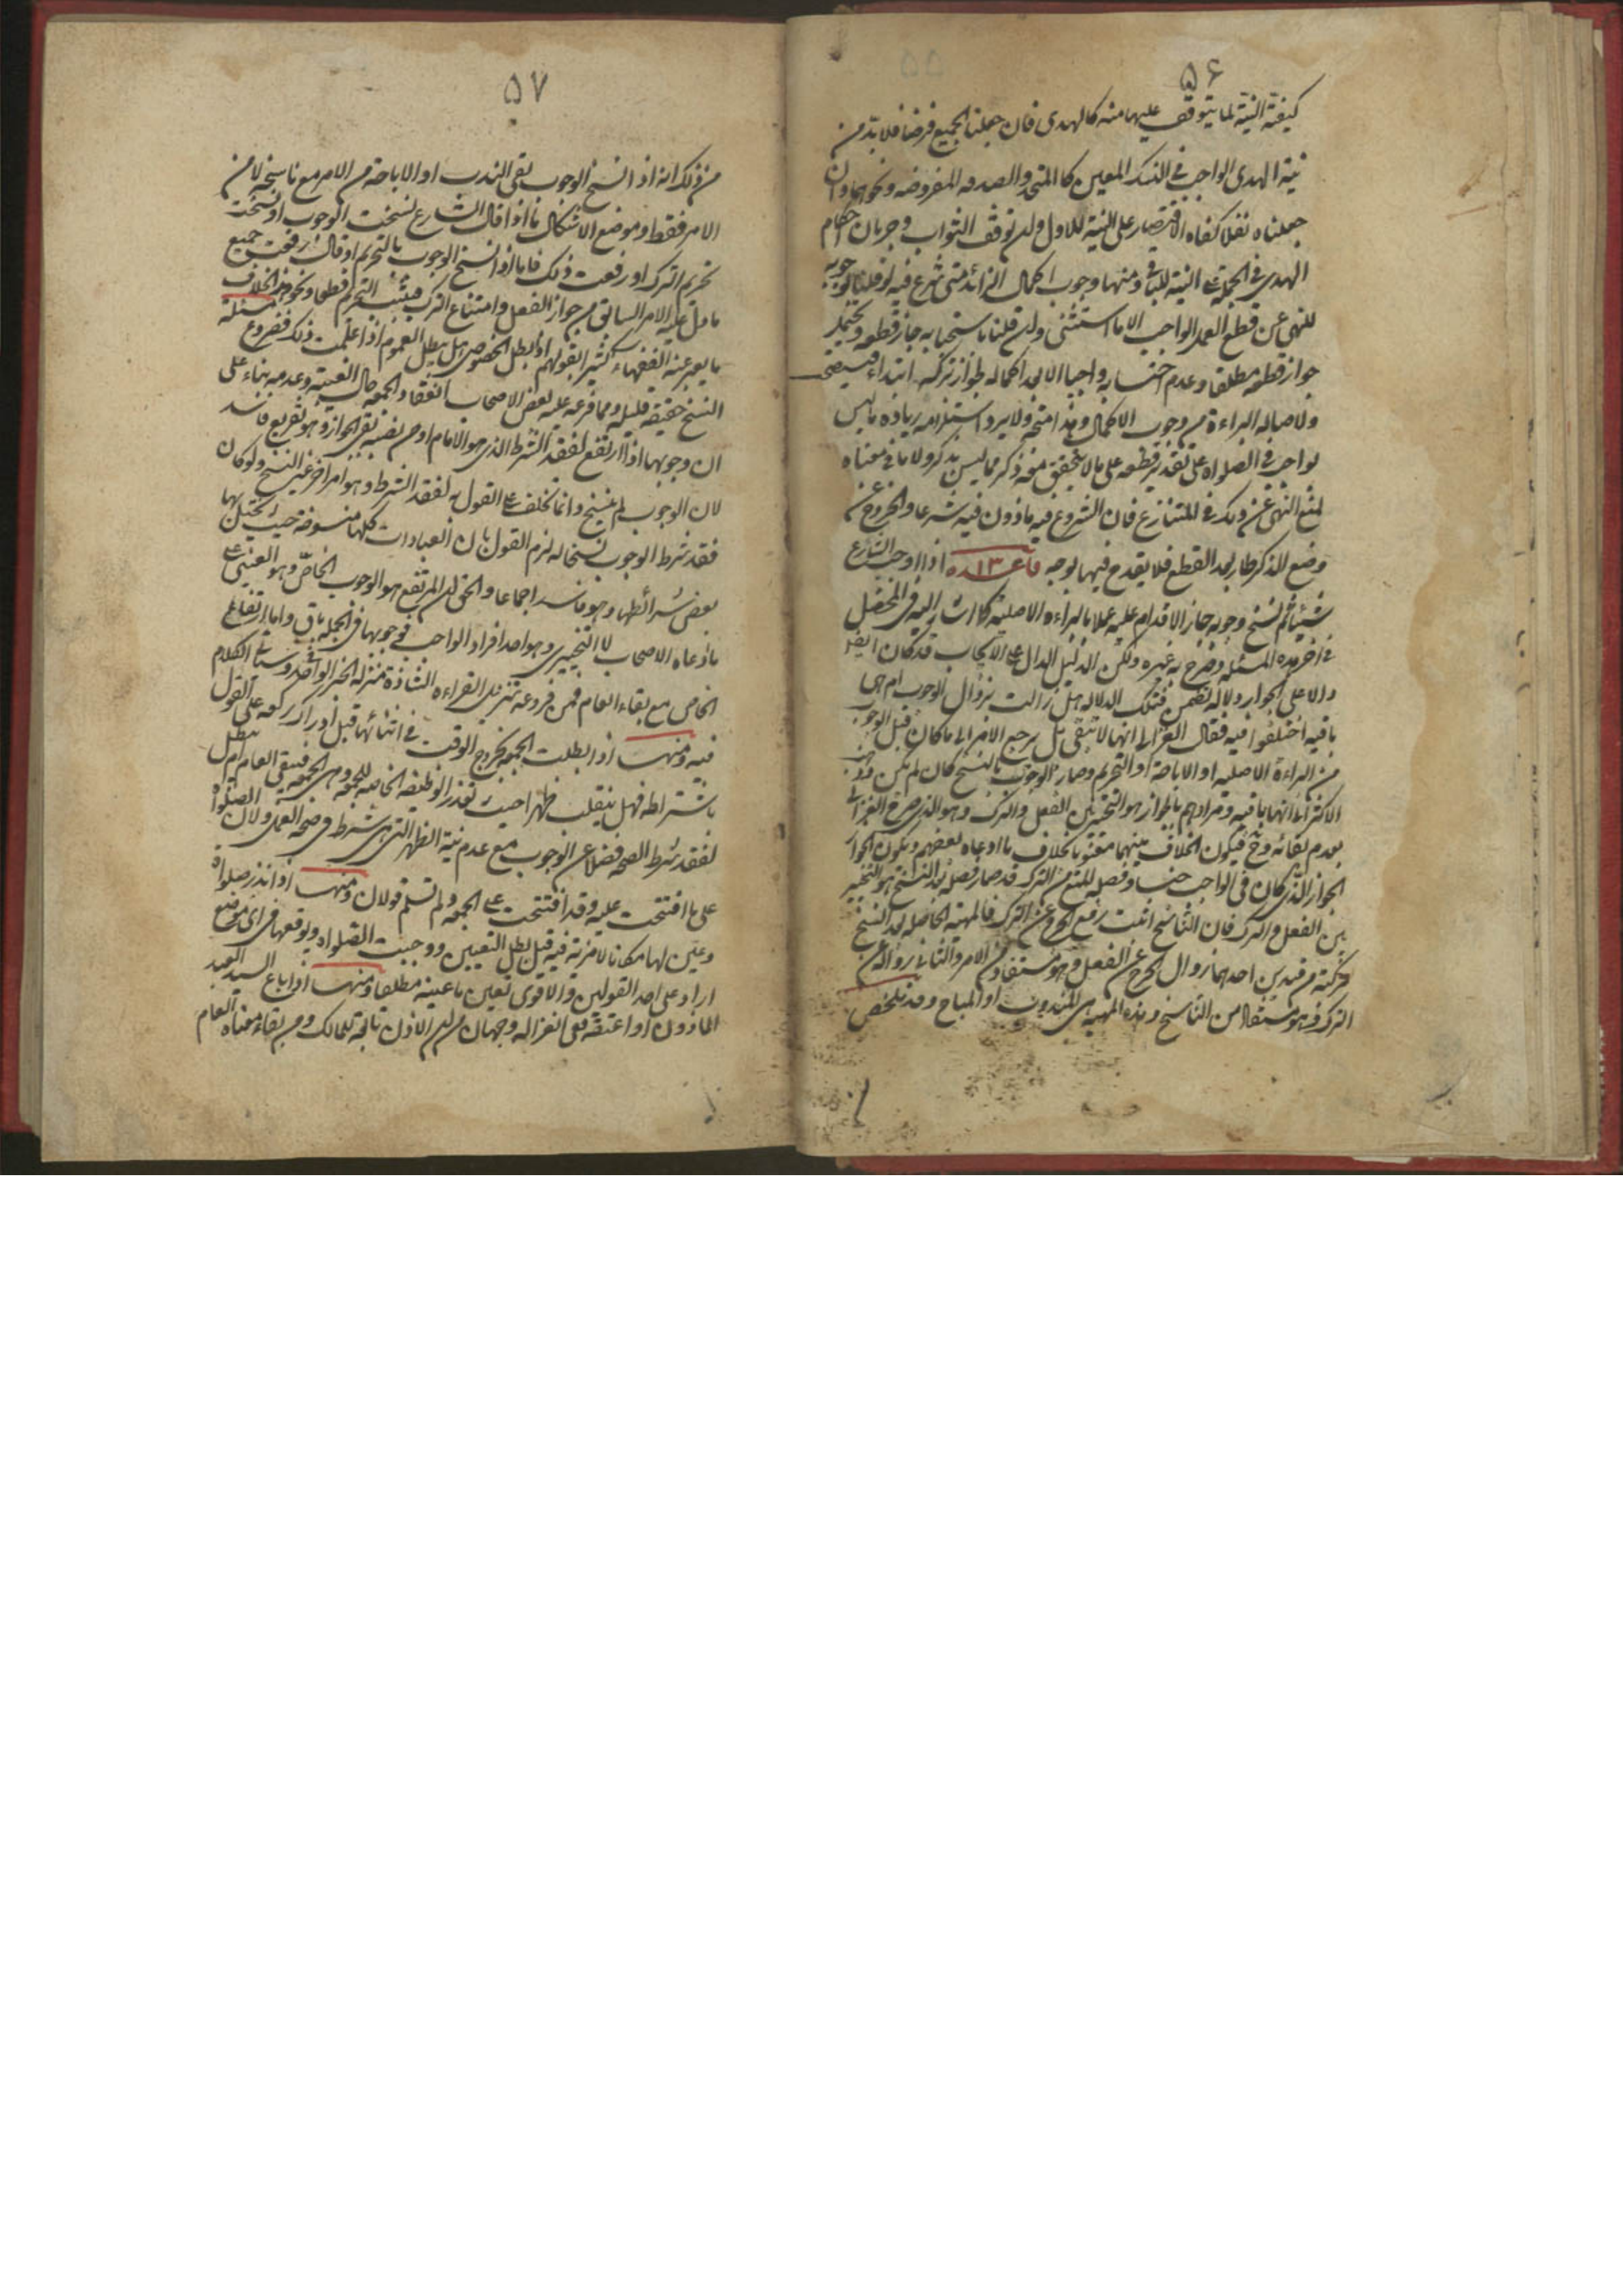 ۵۶
كيفية النية لما يتوقف عليها منه كالهدى فان جعلنا الجميع فرضا فلا بد من
نية الهدى الواجب فى النسك المعين كالمتمتع والصدقه المفروضه ونحوهما وان
جعلناه نفلا كفاه الاقتصار على النية للاول ولو توقف الثواب وجريان احكام
الهدى فى الجملة على النية للباقى ومنها وجوب اكمال الزائد متى شرع فيه لو قلنا بوجوبه
للنهى عن قطع العمل الواجب الا ما استثنى وان قلنا باستحبابه جاز قطعه ويحتمل
جواز قطعه مطلقا وعدم احتسابه واجبا الا بعد اكماله لجواز تركه ابتداء فيستصحب
ولاصالة البراءة من وجوب الاكمال وهذا متجه ولا يرد استلزامه زيادة ما ليس
بواجب فى الصلواة على تقدير قطعه على ما لا يتحقق معه ذكر مما ليس بذكر ولا ما فى معناه
لمنع النهى عن ذلك فى المتنازع فان الشروع فيه ماذون فيه شرعا والخروج عن
وضع الذكر طار بعد القطع فلا يقدح فيها بوجه قاعدة ۱۳ اذا اوجب الشارع
شيئا ثم نسخ وجوبه جاز الاقدام عليه عملا بالبراءة الاصلية كما اشار اليه فى المحصل
فى اخر هذه المسئلة وصرح به غيره ولكن الدليل الدال على الايجاب قد كان ايضا
دالا على الجواز دلالة تضمن فتلك الدلالة هل زالت بزوال الوجوب ام هى
باقية اختلفوا فيه فقال الغزالى انها لا تبقى بل يرجع الامر الى ما كان قبل الوجوب
من البراءة الاصلية او الاباحة او التحريم وصار الوجوب بالنسخ كان لم يكن وذهب
الاكثر الى انها باقية ومرادهم بالجواز هو التخيير بين الفعل والترك وهو الذى صرح الغزالى
بعدم بقائه وح فيكون الخلاف بينهما معنويا بخلاف ما ادعاه بعضهم ويكون الجواز
الجواز الذى كان فى الواجب جنسا وفصله المنع من الترك قد صار فصله بعد النسخ هو التخيير
بين الفعل والترك فان الناسخ اثبت رفع الحرج عن الترك فالمهية الحاصلة بعد النسخ
مركبة من قيدين احدهما زوال الحرج عن الفعل وهو مستفاد من الامر والثانى زواله عن
الترك وهو مستفاد من الناسخ وهذه المهية هى المندوب او المباح وقد تلخص
۵۷
من ذلك انه اذا نسخ الوجوب بقى الندب او الاباحة من الامر مع ناسخه لا من
الامر فقط وموضع الاشكال ما اذا قال الشارع نسخت الوجوب او نسخت
تحريم الترك او رفعت ذلك فاما اذا نسخ الوجوب بالتحريم او قال رفعت جميع
ما دل عليه الامر السابق من جواز الفعل وامتناع الترك فيثبت التحريم قطعا ونحو هذا الخلاف
ما يعبر عنه الفقهاء كثيرا بقولهم اذا بطل الخصوص هل يبطل العموم اذا علمت ذلك ففروع مسئلة
النسخ حقيقة قليله ومما فرعه عليه بعض الاصحاب انعقاد الجمعة حال الغيبة وعدمه بناء على
ان وجوبها اذا ارتفع لفقد الشرط الذى هو الامام او من نصبه بقى الجواز وهو تفريع فاسد
لان الوجوب لم ينسخ وانما تخلف على القول به لفقد الشرط وهو امر اخر غير النسخ ولو كان
فقد شرط الوجوب نسخا له لزم القول بان العبادات كلها منسوخة حيث يختل بها
بعض شرائطها وهو فاسد اجماعا والحق ان المرتفع هو الوجوب الخاص وهو العينى على
ما ادعاه الاصحاب لا التخييرى وهو احد افراد الواجب فوجوبها فى الجملة باق واما ارتفاع
الخاص مع بقاء العام فمن فروعه تنزيل القراءة الشاذة منزلة الخبر الواحد وسياتى الكلام
فيه ومنها اذا بطلت الجمعة بخروج الوقت فى اثنائها قبل ادراك ركعة على القول
باشتراطه فهل ينقلب ظهرا حيث تعذر الوظيفة الخاصة للجمعة وهى الجمعة فيبقى العام ام يبطل
لفقد شرط الصحة فضلا عن الوجوب مع عدم نية الظهر التى هى شرط فى صحة العمل ولان الصلواة
على ما افتتحت عليه وقد افتتحت على الجمعة ولم تسلم قولان ومنها اذا نذر صلواة
وعين لها مكانا لا مزية فيه قيل بطل التعيين ووجبت الصلواة ويوقعها فى اى موضع
اراد على احد القولين والاقوى تعين ما عينه مطلقا ومنها اذا باع السيد العبد
الماذون او اعتقه ففى انعزاله وجهان من ان الاذن تابعة للمالك ومن بقاء معناه العام